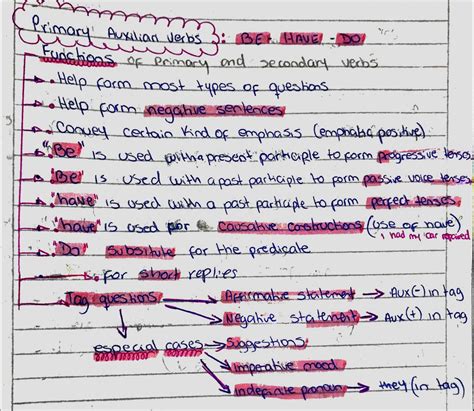 Primary Auxiliar Verbs: BE - HAVE - DO
Functions of primary and secondary verbs
Help form most types of questions
Help form negative sentences
Convey certain kind of emphasis (emphatic positive)
"Be" is used with a present participle to form progressive tenses
"Be" is used with a past participle to form passive voice tenses
"have" is used with a past participle to form perfect tenses
"have" is used for causative constructions (use of have)
I had my car repaired
"Do" substitute for the predicate
for short replies
Tag questions → Affirmative statement → Aux(-) in tag
→ Negative statement → Aux(+) in tag
especial cases → Suggestions
→ Imperative mood
→ Indefinite pronoun → they (in tag)